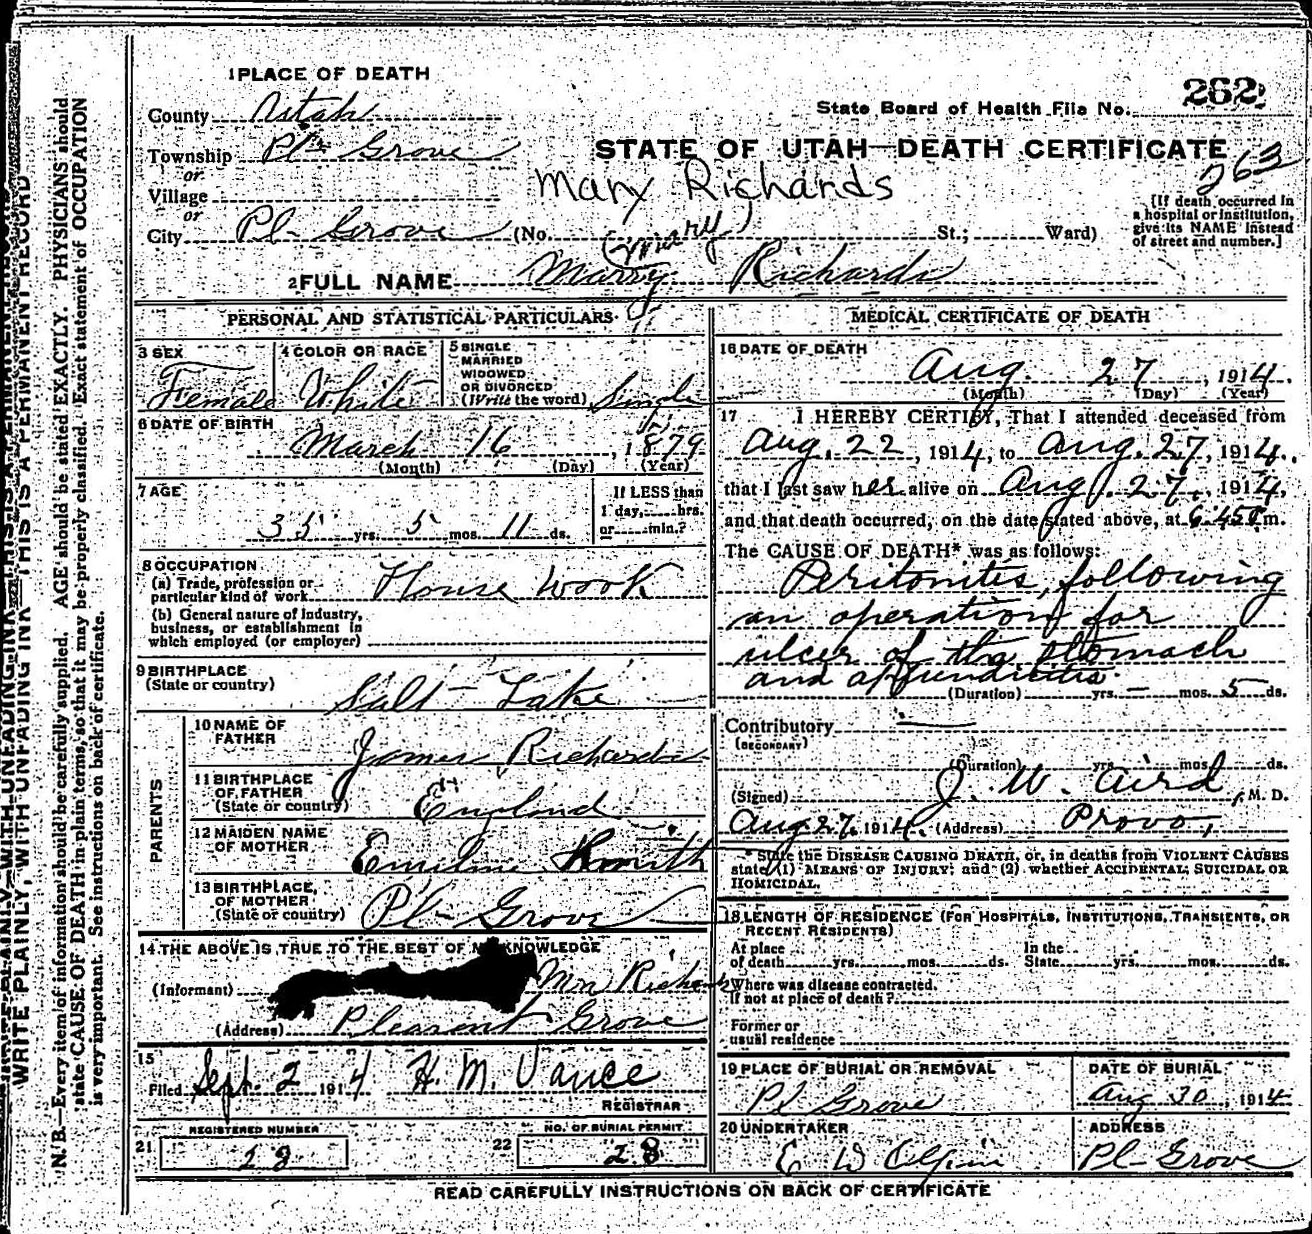 1 PLACE OF DEATH
County Utah
Township Pl. Grove
or
Village
or
City Pl- Grove (No. St.; Ward)
State Board of Health File No. 262
STATE OF UTAH—DEATH CERTIFICATE
263
Mary Richards
[If death occurred in
a hospital or institution,
give its NAME instead
of street and number.]
(Mary)
2 FULL NAME Marry Richards
PERSONAL AND STATISTICAL PARTICULARS
3 SEX
Female
4 COLOR OR RACE
White
5 SINGLE
MARRIED
WIDOWED
OR DIVORCED
(Write the word) Single
6 DATE OF BIRTH
March 16, 1879
(Month) (Day) (Year)
7 AGE
35 yrs. 5 mos. 11 ds.
If LESS than
1 day, hrs.
or min.?
8 OCCUPATION
(a) Trade, profession or
particular kind of work House work
(b) General nature of industry,
business, or establishment in
which employed (or employer)
9 BIRTHPLACE
(State or country)
Salt Lake
PARENTS
10 NAME OF
FATHER
James Richards
11 BIRTHPLACE
OF FATHER
(State or country)
England
12 MAIDEN NAME
OF MOTHER
Smith
13 BIRTHPLACE,
OF MOTHER
(State or country)
Pl- Grove
14 THE ABOVE IS TRUE TO THE BEST OF MY KNOWLEDGE
(Informant) Richards
(Address) Pleasant Grove
15
Filed Sept. 2 1914 H. M. Vance
REGISTRAR
REGISTERED NUMBER
21 28
NO. OF BURIAL PERMIT
22 28
MEDICAL CERTIFICATE OF DEATH
16 DATE OF DEATH
Aug. 27, 1914.
(Month) (Day) (Year)
17 I HEREBY CERTIFY, That I attended deceased from
Aug. 22, 1914, to Aug. 27, 1914.,
that I last saw her alive on Aug. 27, 1914,
and that death occurred, on the date stated above, at 6.45 m.
The CAUSE OF DEATH* was as follows:
Peritonites, following
an operation for
ulcer of the stomach
and appendicitis.
(Duration) yrs. — mos. 5 ds.
Contributory
(SECONDARY)
(Duration) yrs. mos. ds.
(Signed) J. W. Aird, M. D.
Aug 27, 1914. (Address) Provo,
* State the DISEASE CAUSING DEATH, or, in deaths from VIOLENT CAUSES
state (1) MEANS OF INJURY; and (2) whether ACCIDENTAL, SUICIDAL OR
HOMICIDAL.
18 LENGTH OF RESIDENCE (FOR HOSPITALS, INSTITUTIONS, TRANSIENTS, OR
RECENT RESIDENTS)
At place In the
of death yrs. mos. ds. State yrs. mos. ds.
Where was disease contracted.
If not at place of death?
Former or
usual residence
19 PLACE OF BURIAL OR REMOVAL
Pl Grove
DATE OF BURIAL
Aug 30, 1914
20 UNDERTAKER
E W
ADDRESS
Pl- Grove
READ CAREFULLY INSTRUCTIONS ON BACK OF CERTIFICATE
WRITE PLAINLY, WITH UNFADING INK—THIS IS A PERMANENT RECORD
N. B.—Every item of information should be carefully supplied. AGE should be stated EXACTLY. PHYSICIANS should
state CAUSE OF DEATH in plain terms, so that it may be properly classified. Exact statement of OCCUPATION
is very important. See instructions on back of certificate.